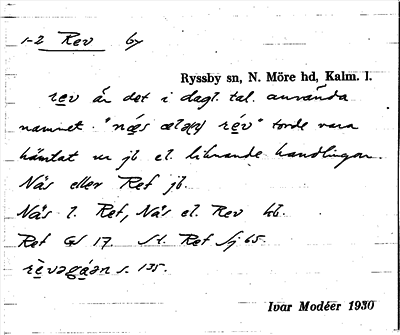 1-2 Rev by
Ryssby sn, N. Möre hd, Kalm. l.
rev är det i dagl. tal. använda
namnet. "næs elər rév" torde vara
hämtat ur jb el. liknande handlingar.
Näs eller Ref jb.
Näs l. Ref, Näs el. Rev kb.
Ref GS 17. St. Ref Sj 65.
s. 135.
Ivar Modéer 1930